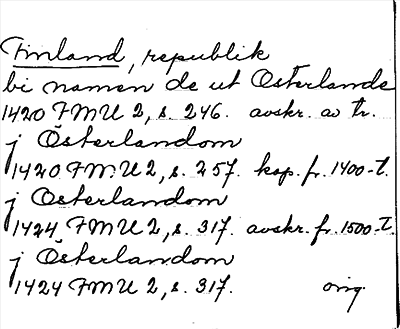 Finland, republik
bi namen de ut Österlande
1420 FMU 2, s. 246. avskr. av tr.
j Österlandom
1420 FMU 2, s. 257. kop. fr. 1400-t.
j Osterlandom
1424 FMU 2, s. 317. avskr. fr. 1500-t.
j Österlandom
1424 FMU 2, s. 317. orig.